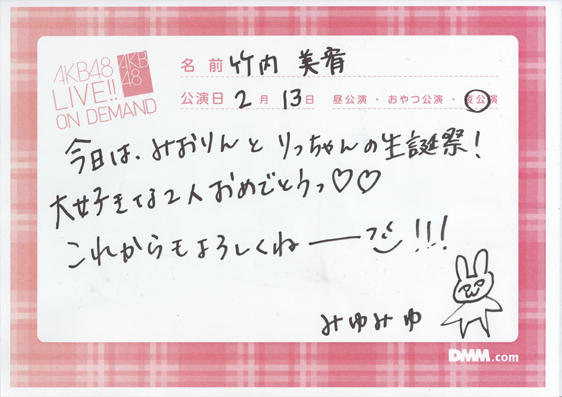 AKB48
LIVE!!
ON DEMAND
AKB
48
名前 竹内 美宥
公演日 2月 13日 昼公演・おやつ公演・夜公演
今日は、みおりんと りっちゃんの生誕祭!
大好きな2人おめでとうっ♡♡
これからもよろしくねーーっ!!!
みゆみゆ
DMM.com